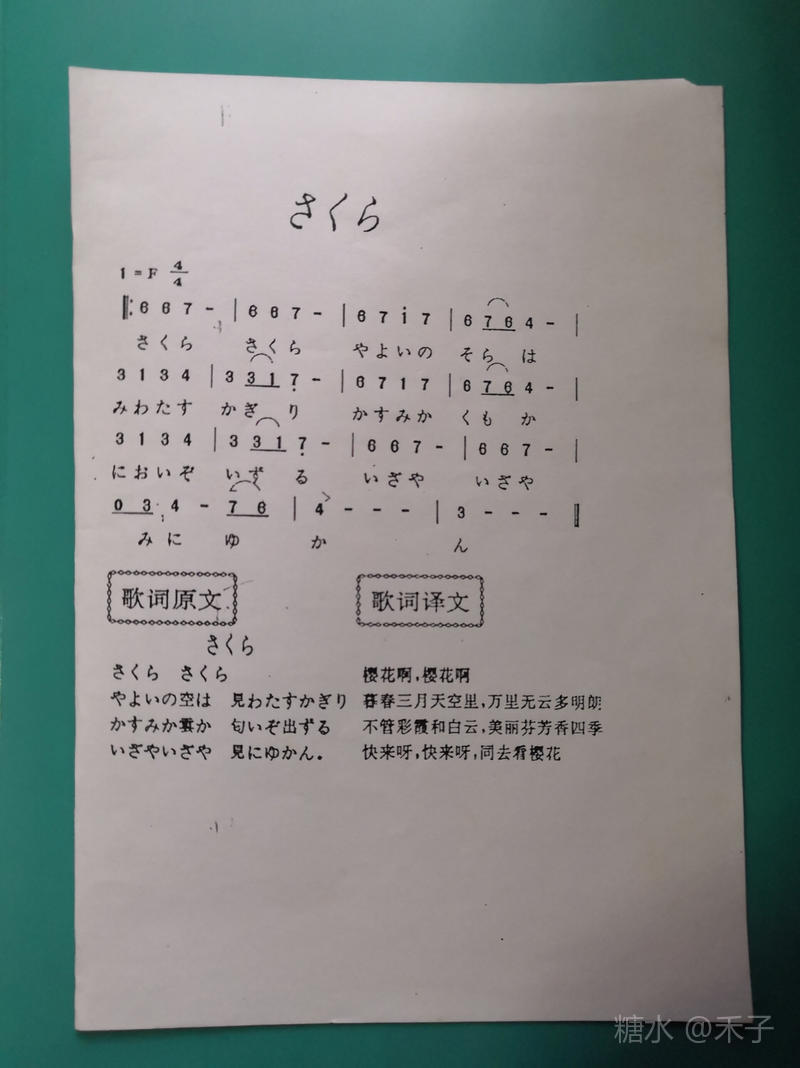 さくら
1=F 4/4
‖: 6 6 7 - | 6 6 7 - | 6 7 i 7 | 6 7 6 4 - |
さくら さくら やよいの そら は
3 1 3 4 | 3 3 1 7 - | 6 7 1 7 | 6 7 6 4 - |
みわたす かぎ り かすみか くも か
3 1 3 4 | 3 3 1 7 - | 6 6 7 - | 6 6 7 - |
においぞ いず る いざや いざや
0 3 4 - 7 6 | 4 - - - | 3 - - - ‖
みに ゆ か ん
歌词原文
歌词译文
さくら
さくら さくら
やよいの空は 見わたすかぎり
かすみか雲か 匂いぞ出ずる
いざやいざや 見にゆかん.
樱花啊,樱花啊
暮春三月天空里,万里无云多明朗
不管彩霞和白云,美丽芬芳香四季
快来呀,快来呀,同去看樱花
糖水 @禾子